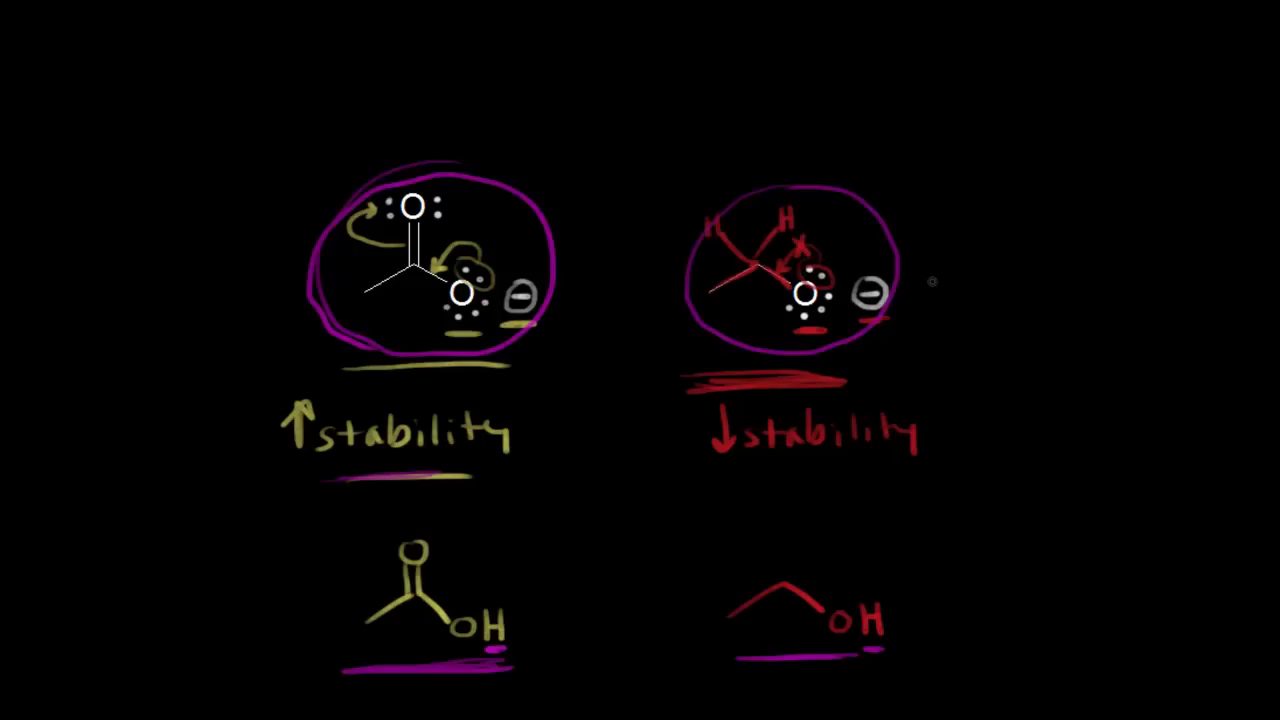 O
H H
O −
O −
↑stability ↓stability
O
OH OH